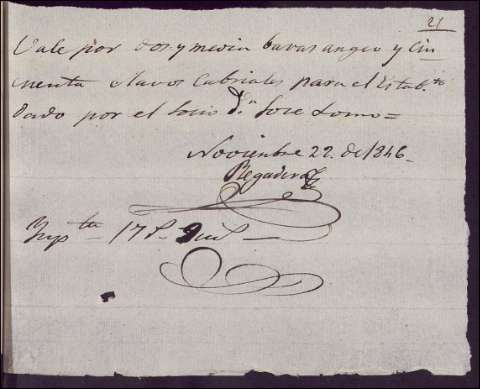 21
Vale por dos y media baras angeo y Cin
cuenta clavos Cabriales para el Estab.to
Dado por el Socio D.n Jose Lomo=
Noviembre 22. de 1846.
Regadera
Ymp.ta 17